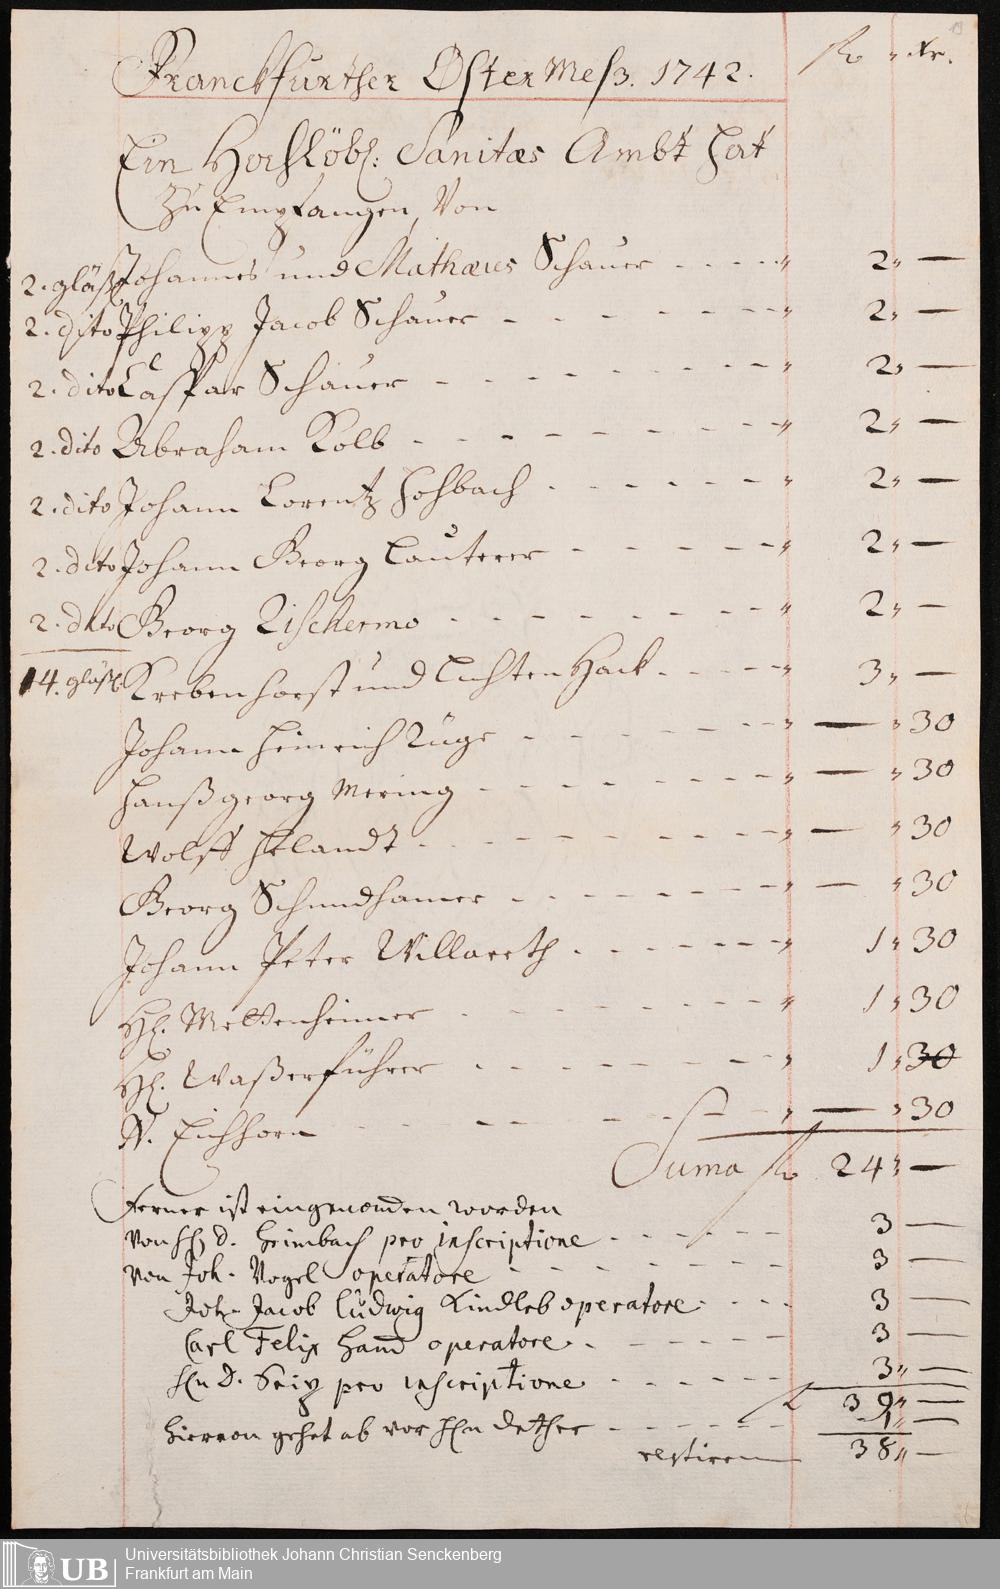 fl. " Xr.
Franckfurther Oster Meß. 1742.
Ein Hochlöbl: Sanitæs Ambt hat
Zu Empfangen, Von
2. gläßl Johannes und Mathæus Schauer - - - - " 2 " —
2. dito Philipp Jacob Schauer - - - - - - - " 2 " —
2. dito Caspar Schauer - - - - - - - - - " 2 " —
2. dito Abraham Kolb - - - - - - - - - " 2 " —
2. dito Johann Lorentz Hohbach - - - - - - " 2 " —
2. dito Johann Georg Lauterer - - - - - - " 2 " —
2. dito Georg Zischermo - - - - - - - - " 2 " —
14. gläßl. Krebenhorst und Lichten Hack - - - - " 3 " —
Johann Heinrich Rüge - - - - - - - " — " 30
Hanß georg Mering - - - - - - - - " — " 30
Wolff Helandt - - - - - - - - - " — " 30
Georg Schmidhamer - - - - - - - " — " 30
Johann Peter Villareth - - - - - - " 1 " 30
Hl. Mettenheimer - - - - - - - - " 1 " 30
Hl. Waßerführer - - - - - - - - " 1 " 30
N. Eichhorn - - - - - - - - " — " 30
Suma fl. 24 " —
Ferner ist eingenomen worden
von Hl. D. Heimbach pro inscriptione - - - - - 3 —
von Joh. Vogel operatore - - - - - - - 3 —
Joh. Jacob Ludwig Kindleb operatore - - - 3 —
Carl Felix Hand operatore - - - - - - 3 —
Hn D. Seiz pro inscriptione - - - - - 3 " —
fl. 39 " —
hiervon gehet ab vor Hln Dether - - - - - 1 " —
restiren — 38 " —
UB Universitätsbibliothek Johann Christian Senckenberg
Frankfurt am Main